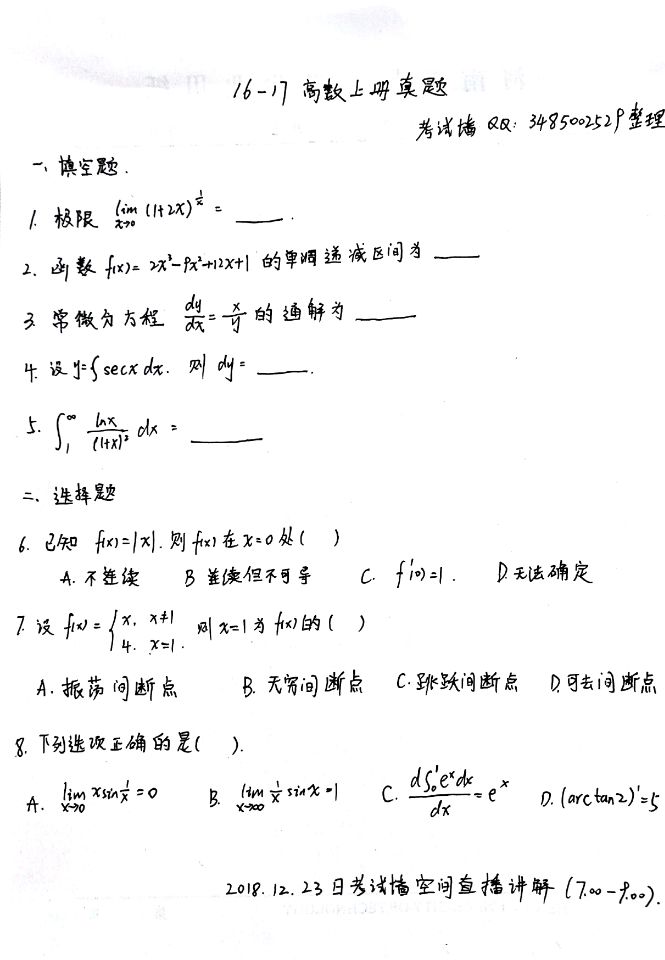 16-17 高数上册真题
考试墙 QQ: 3485002529整理
一、填空题.
1. 极限 lim x→0 (1+2x)^(1/x) = ____.
2. 函数 f(x)= 2x³-9x²+12x+1 的单调递减区间为 ____
3. 常微分方程 dy/dx = x/y 的通解为 ____
4. 设 y=∫secx dx. 则 dy= ____.
5. ∫₁^∞ lnx/(1+x)² dx = ____
二、选择题
6. 已知 f(x)=|x|. 则 f(x) 在 x=0 处 ( )
A. 不连续 B 连续但不可导 C. f'(0)=1. D. 无法确定
7. 设 f(x) = { x, x≠1
4. x=1. 则 x=1 为 f(x) 的 ( )
A. 振荡间断点 B. 无穷间断点 C. 跳跃间断点 D. 可去间断点
8. 下列选项正确的是( ).
A. lim x→0 x sin 1/x = 0 B. lim x→∞ 1/x sinx =1 C. d∫₀¹eˣdx/dx = eˣ D. (arctan2)'=5
2018.12.23日考试墙空间直播讲解 (7.00-9.00).